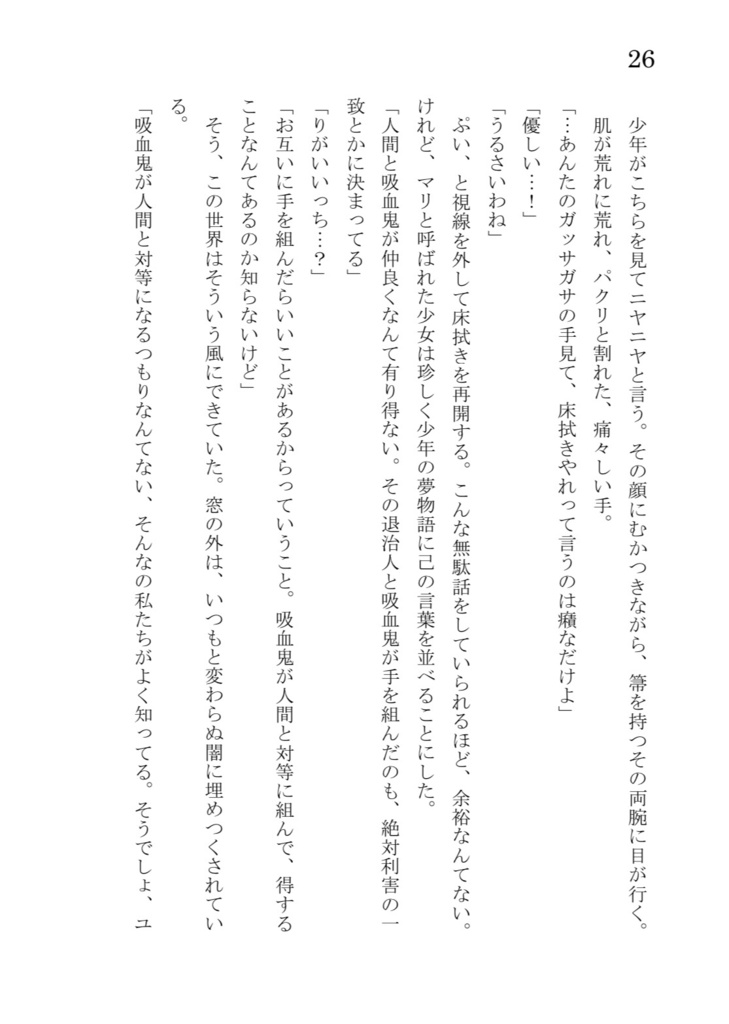 26
　少年がこちらを見てニヤニヤと言う。その顔にむかつきながら、箒を持つその両腕に目が行く。
　肌が荒れに荒れ、パクリと割れた、痛々しい手。
「…あんたのガッサガサの手見て、床拭きやれって言うのは癪なだけよ」
「優しい…！」
「うるさいわね」
　ぷい、と視線を外して床拭きを再開する。こんな無駄話をしていられるほど、余裕なんてない。
けれど、マリと呼ばれた少女は珍しく少年の夢物語に己の言葉を並べることにした。
「人間と吸血鬼が仲良くなんて有り得ない。その退治人と吸血鬼が手を組んだのも、絶対利害の一
致とかに決まってる」
「りがいいっち…？」
「お互いに手を組んだらいいことがあるからっていうこと。吸血鬼が人間と対等に組んで、得する
ことなんてあるのか知らないけど」
　そう、この世界はそういう風にできていた。窓の外は、いつもと変わらぬ闇に埋めつくされてい
る。
「吸血鬼が人間と対等になるつもりなんてない、そんなの私たちがよく知ってる。そうでしょ、ユ